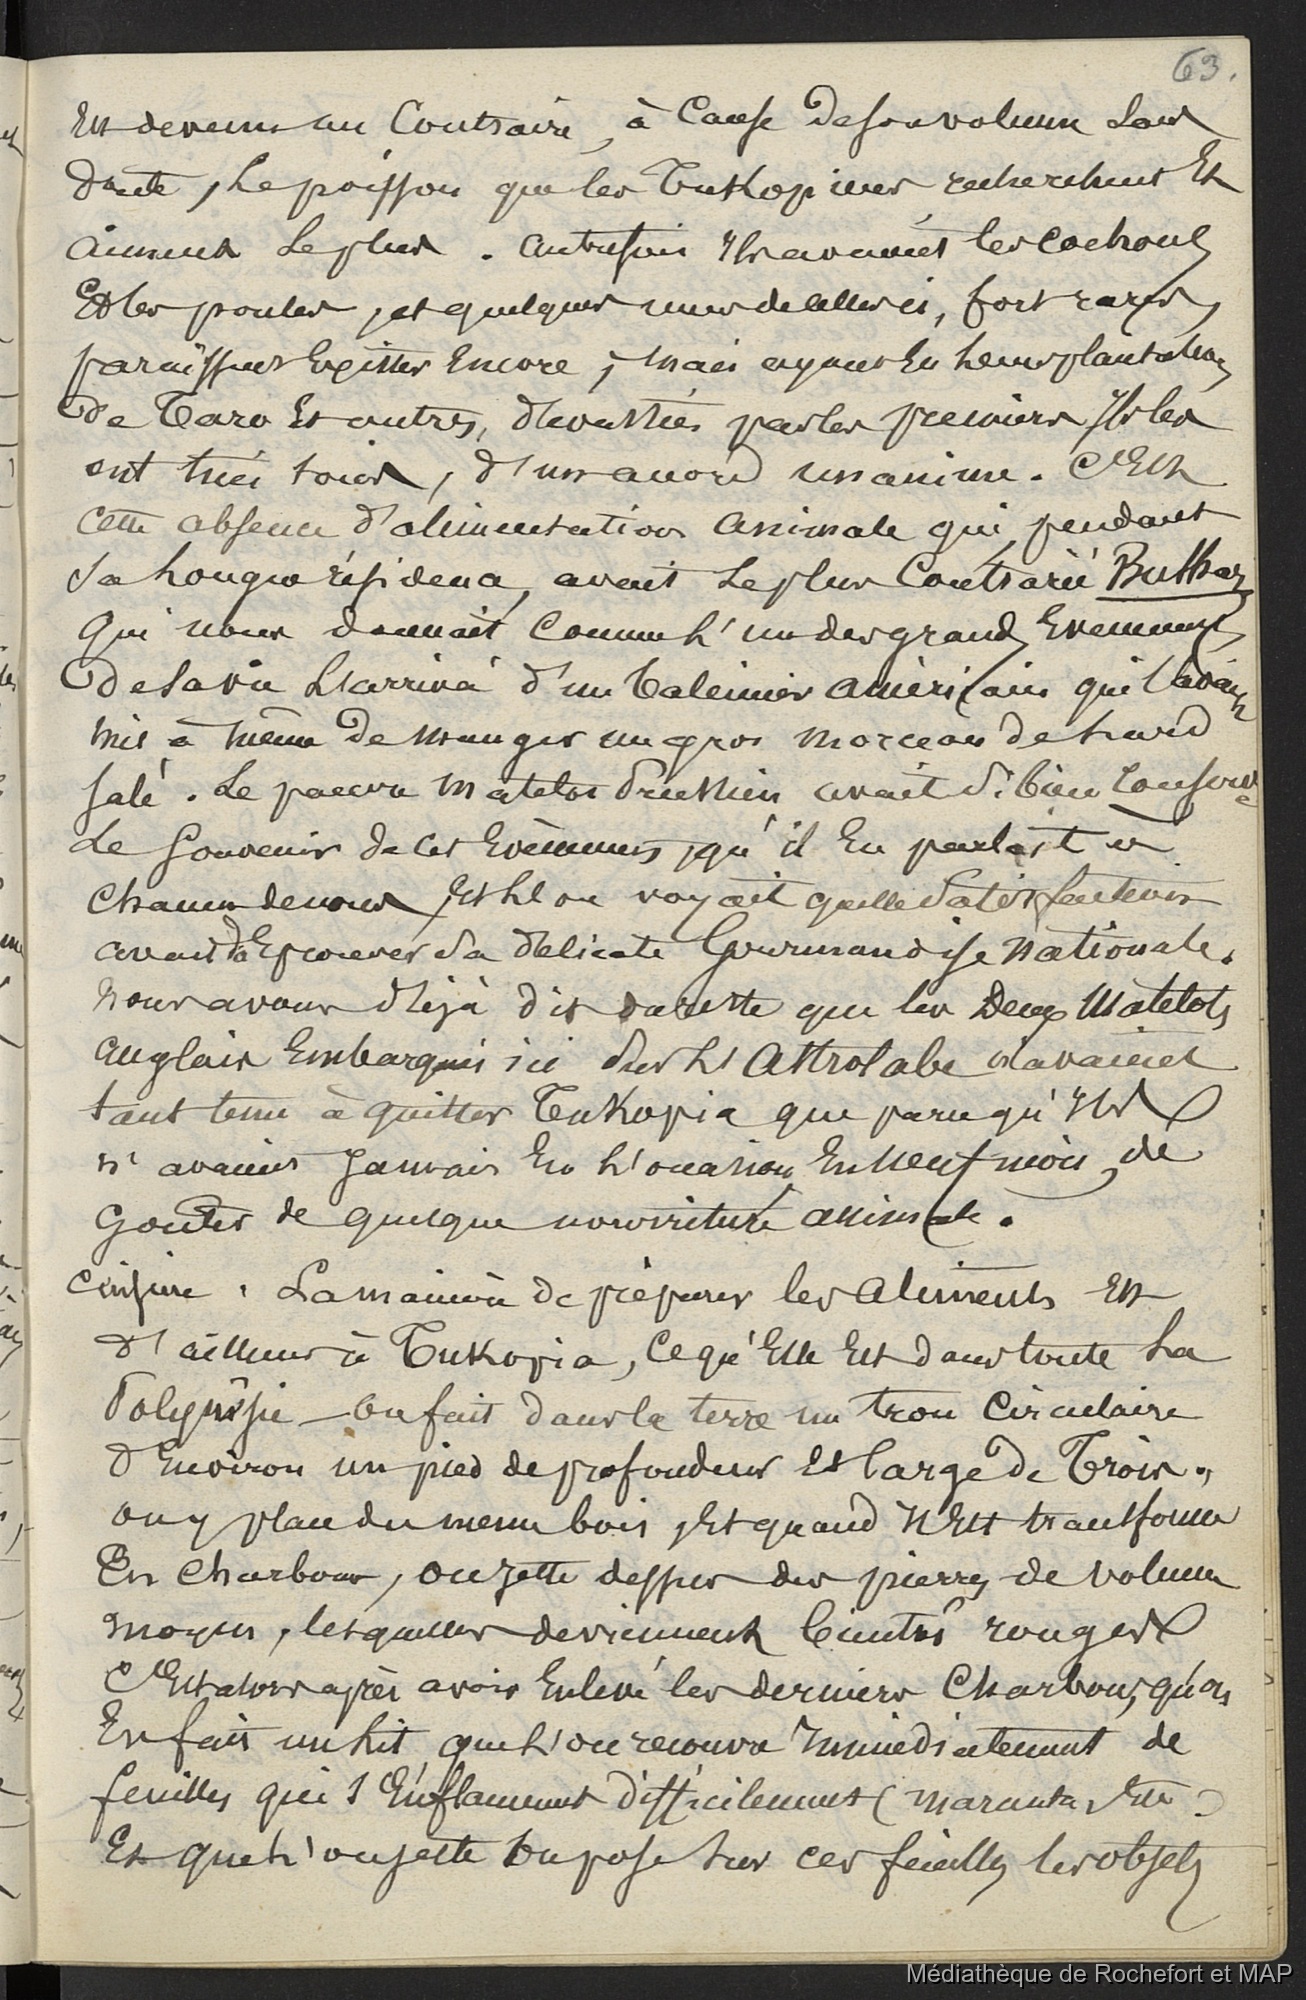 63.
Est devenu au Contraire, à Cause de son volume sans
doute, Le poisson que les Tukopiens recherchent Et
aiment Le plus. autrefois Ils avaient les cochons
Et les poules, et quelques unes de celles ci, fort rares,
paraissent Exister Encore, mais ayant Eu Leurs plantations
de Taro Et autres, dévastées par les premiers Ils les
ont tués tous, d'un accord unanime. C'Est
cette absence d'alimentation animale qui pendant
sa Longue résidence, avait Le plus Contrarié Buthar
qui nous donnait Comme L'un des grands Evenements
de sa vie L'arrivée d'un Baleinier américain qui l'avait
mis à même de manger un gros morceau de Lard
salé. Le pauvre matelot Prussien avait si bien Conservé
Le Souvenir de ces Evènements, qu'il En parlait à
chacun de nous, Et L'on voyait quelle Satisfaction
avait dû Eprouver sa délicate Gourmandise Nationale.
Nous avons déjà dit du reste que les Deux Matelots
anglais Embarqués ici sur L'Astrolabe n'avaient
tant tenu à quitter Tukopia que parce qu'Ils
n'avaient Jamais Eu L'occasion, En Neuf mois, de
Goûter de quelque nourriture animale.
Cuisine. La manière de préparer les aliments Est
d'ailleurs à Tukopia, Ce qu'Elle Est dans toute La
Polynésie — On fait dans la terre un trou Circulaire
d'Environ un pied de profondeur Et large de Trois.,
on y place du menu bois, Et quand Il Est transformé
En Charbons, on jette dessus des pierres de volume
moyen, lesquelles deviennent bientôt rouges
C'Est alors après avoir Enlevé les derniers Charbons, qu'on
En fait un Lit que L'on recouvre Immédiatement de
feuilles qui s'Enflamment difficilement (maranta, Etc.)
Et que L'on jette Ou pose sur ces feuilles les objets
Médiathèque de Rochefort et MAP